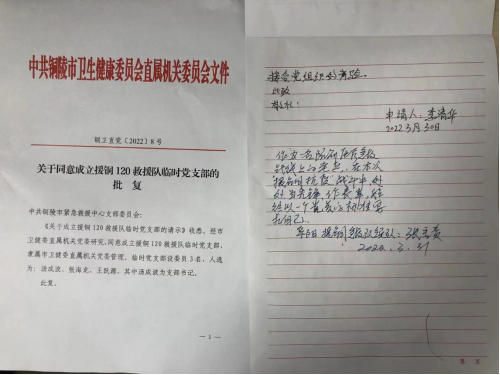 中共铜陵市卫生健康委员会直属机关委员会文件
铜卫直党〔2022〕8号
关于同意成立援铜120救援队临时党支部的
批 复
中共铜陵市紧急救援中心支部委员会：
《关于成立援铜120救援队临时党支部的请示》收悉，经市
卫健委直属机关党委研究，同意成立援铜120救援队临时党支部，
隶属市卫健委直属机关党委管理，临时党支部设委员3名，人选
为：汤成波、张海龙、王跃灏，其中汤成波为支部书记。
此复。
— 1 —
接受党组织的考验。
此致
敬礼！
申请人：李清华
2022年3月30日
作为一名
战线上的党员，在本次
"援铜抗疫"战斗中，处
处当先锋、作表率，始
终以一个党员的标准要
求自己。
2022.3.31
第 页